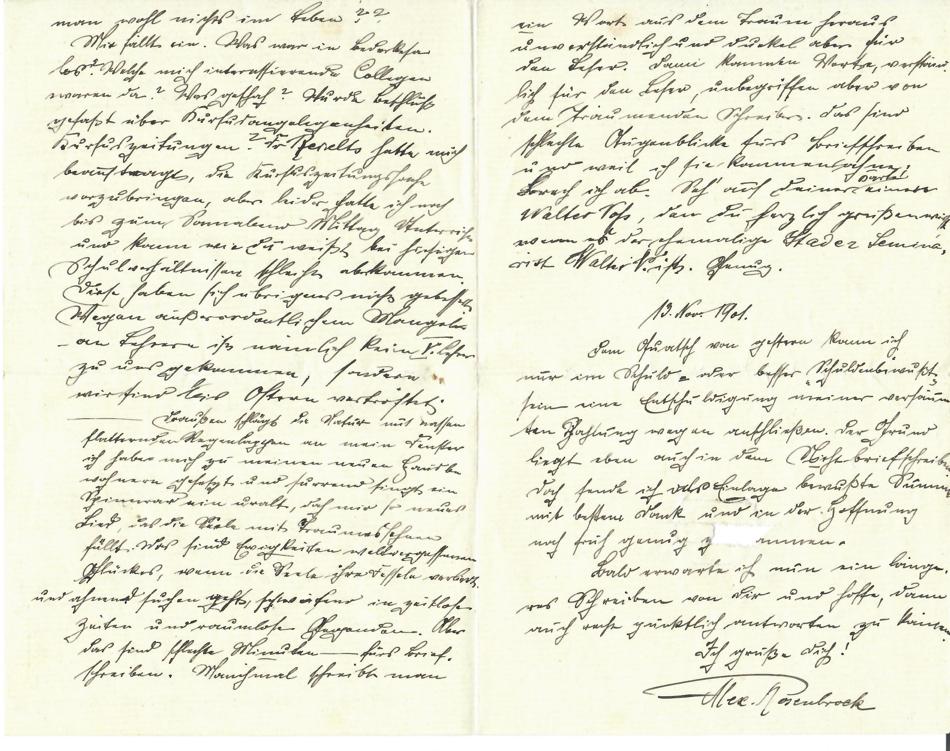 man wohl nichts im Leben??
Mir fällt ein. Was war in Bederkesa
los? Welche mich interessierende Collegen
waren da? Was geschah? Wurde Beschluß
gefaßt über Kursusangelegenheiten.
Kursuszeitungen? hatte mich
beauftragt, die Kursuszeitungssache
vorzubringen, aber leider hatte ich noch
bis zum Sonnabend Mittag Unterricht
und kann wie Du weißt bei hiesigen
Schulverhältnissen schlecht abkommen.
Diese haben sich übrigens nicht gebessert
Wegen außerordentlichem Mangels
an Lehrern ist nämlich kein Lehrer
zu uns gekommen, sondern
wir sind bis Ostern vertröstet.
Draußen schlägt die Natur mit nassen
flatternden Regenlappen an mein Fenster
ich habe mich zu meinen neuen Hausbe
wohnern gesetzt und surrend singt ein
Spinnrad ein uralt, doch mir so neues
Lied, das die Seele mit Traumessehnen
füllt. Das sind Ewigkeiten weltvergessenen
Glückes, wenn die Seele ihre Fesseln verliert
und ahnend suchen geht, in zeitlose
Zeiten und raumlose Gegenden. Aber
das sind schlechte Minuten fürs Brief-
schreiben. Manchmal schreibt man
ein Wort aus dem Traum heraus
unverständlich und dunkel aber für
den Leser. Dann kommen Worte, verständ
lich für den Leser, unbegriffen aber von
dem träumenden Schreiber. Das sind
schlechte Augenblicke fürs Briefschreiben
und weil ich sie kommen
brach ich ab. Seh' auf Deiner
Walter den Du herzlich grüßen
wenn es der ehemalige Stader Semina-
rist Walter ist. Genug.
13. Nov. 1901.
Dem Quatsch von gestern kann ich
nur im Schuld- oder besser "Schuldenbewußt-
sein eine Entschuldigung meiner versäum
ten Zahlung wegen anschließen. Der Grund
liegt eben auch in dem Nichtbriefschreiben
Doch sende ich als Einlage bewußte Summe
mit bestem Dank und in der Hoffnung
noch früh genug z ommen.
Bald erwarte ich nun ein länge-
res Schreiben von Dir und hoffe, dann
auch recht pünktlich antworten zu können
Ich grüße Dich!
Alex. Rosenbrock